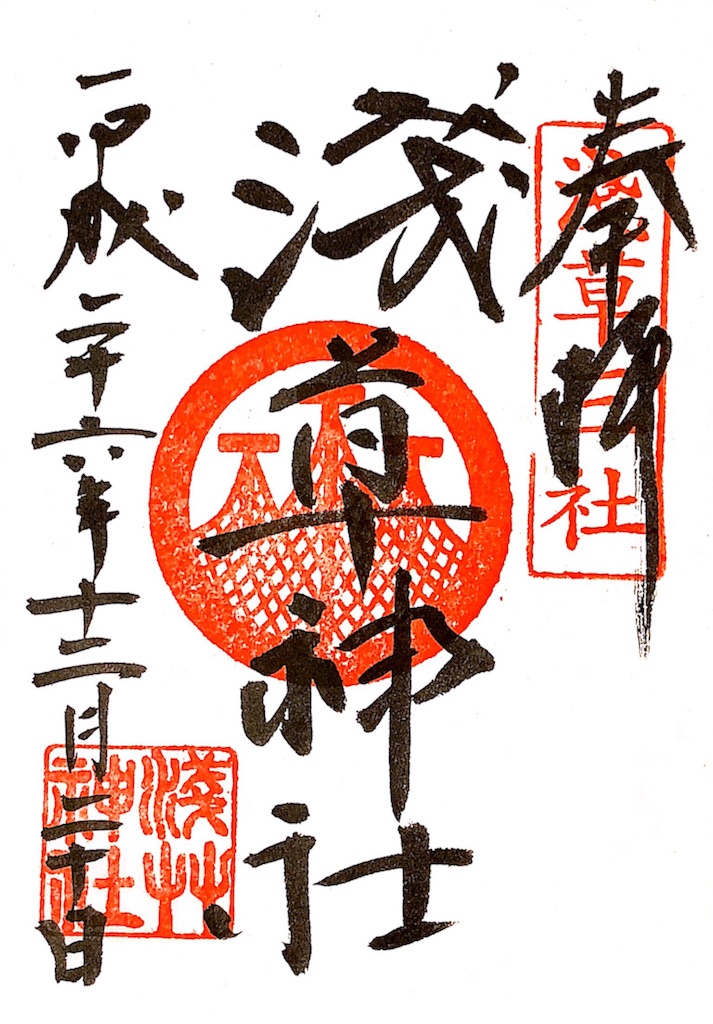 奉拝
浅草名社
浅草神社
平成二十六年十二月二十日
淺艸神社